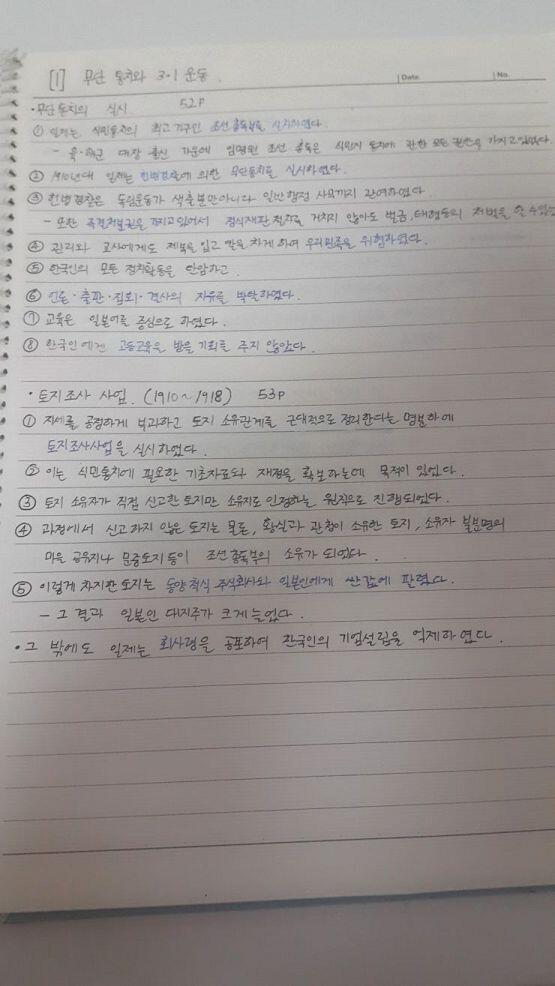 [1] 무단 통치와 3·1 운동.
Date.
No.
·무단통치의 실시 52P
① 일제는 식민통치의 최고기구인 조선총독부를 설치하였다.
- 육·해군 대장 출신 가운데 임명된 조선 총독은 식민지 통치에 관한 모든 권한을 가지고 있었다.
② 1910년대 일제는 헌병경찰에 의한 무단통치를 실시하였다.
③ 헌병경찰은 독립운동가 색출뿐만아니라 일반행정 사무까지 관여하였다.
- 또한 즉결처분권을 가지고있어서 정식재판 절차를 거치지 않아도 벌금, 태형등의 처벌을 할 수있었
④ 관리와 교사에게도 제복을 입고 칼을 차게 하여 우리민족을 위협하였다.
⑤ 한국인의 모든 정치활동을 탄압하고.
⑥ 언론·출판·집회·결사의 자유를 박탈하였다.
⑦ 교육은 일본어를 중심으로 하였다.
⑧ 한국인에겐 고등교육을 받을 기회를 주지 않았다.
· 토지조사 사업. (1910~1918) 53P
① 지세를 공정하게 부과하고 토지 소유관계를 근대적으로 정리한다는 명분하에
토지조사사업을 실시하였다.
② 이는 식민통치에 필요한 기초자료와 재정을 확보하는데 목적이 있었다.
③ 토지 소유자가 직접 신고한 토지만 소유지로 인정하는 원칙으로 진행되었다.
④ 과정에서 신고하지 않은 토지는 물론, 황실과 관청이 소유한 토지, 소유자 불분명의
마을 공유지나 문중토지 등이 조선총독부의 소유가 되었다.
⑤ 이렇게 차지한 토지는 동양척식 주식회사와 일본인에게 싼값에 팔렸다.
- 그 결과 일본인 대지주가 크게 늘었다.
·그 밖에도 일제는 회사령을 공포하여 한국인의 기업설립을 억제하였다.